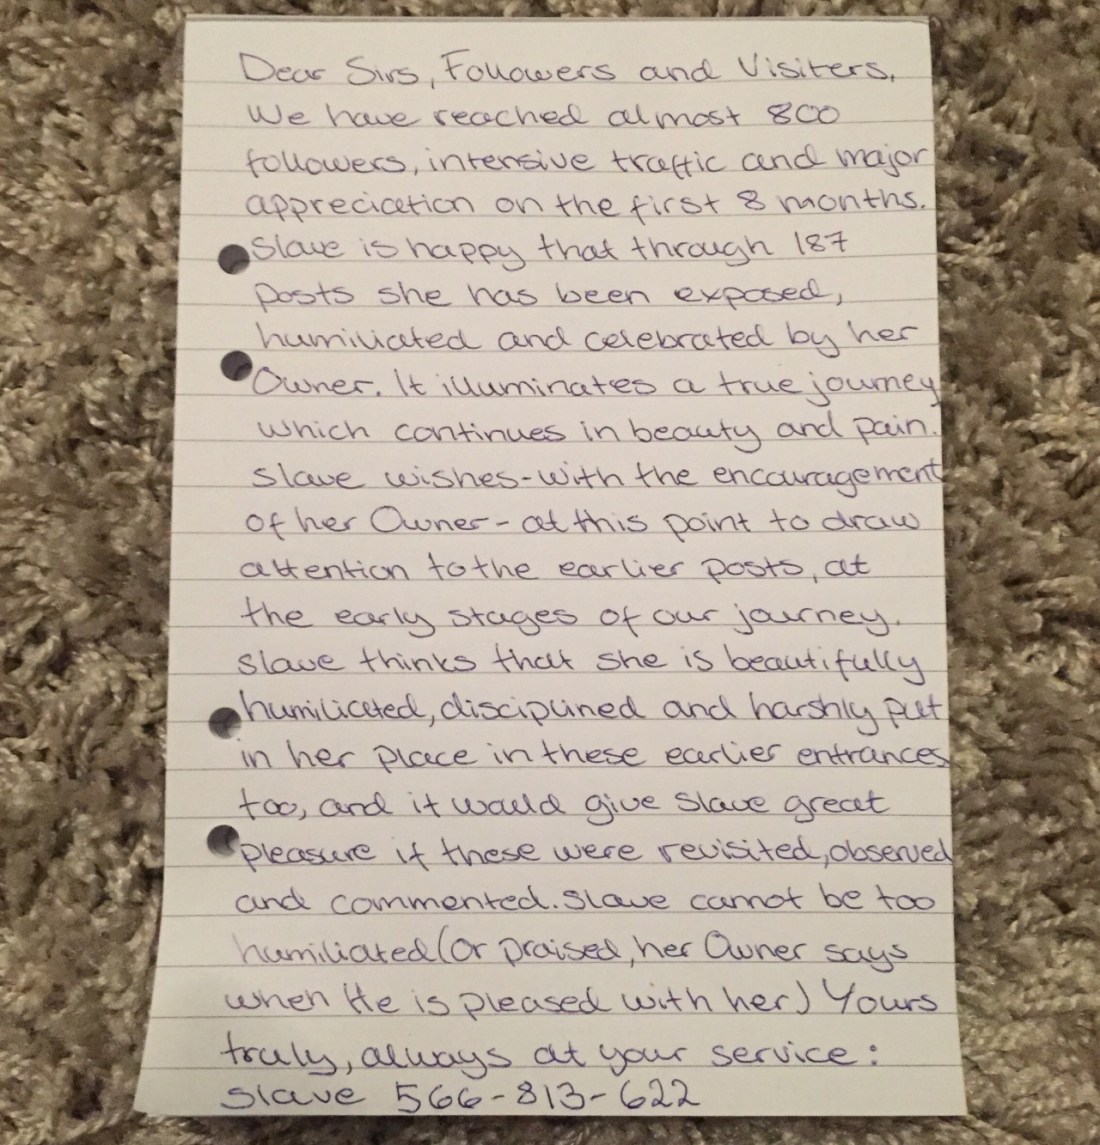 Dear Sirs, Followers and Visiters,
We have reached almost 800
followers, intensive traffic and major
appreciation on the first 8 months.
Slave is happy that through 187
posts she has been exposed,
humiliated and celebrated by her
Owner. It illuminates a true journey
which continues in beauty and pain.
Slave wishes - with the encouragement
of her Owner - at this point to draw
attention to the earlier posts, at
the early stages of our journey.
Slave thinks that she is beautifully
humiliated, disciplined and harshly put
in her place in these earlier entrances
too, and it would give Slave great
pleasure if these were revisited, observed
and commented. Slave cannot be too
humiliated (or praised, her Owner says
when He is pleased with her) Yours
truly, always at your service:
Slave 566-813-622